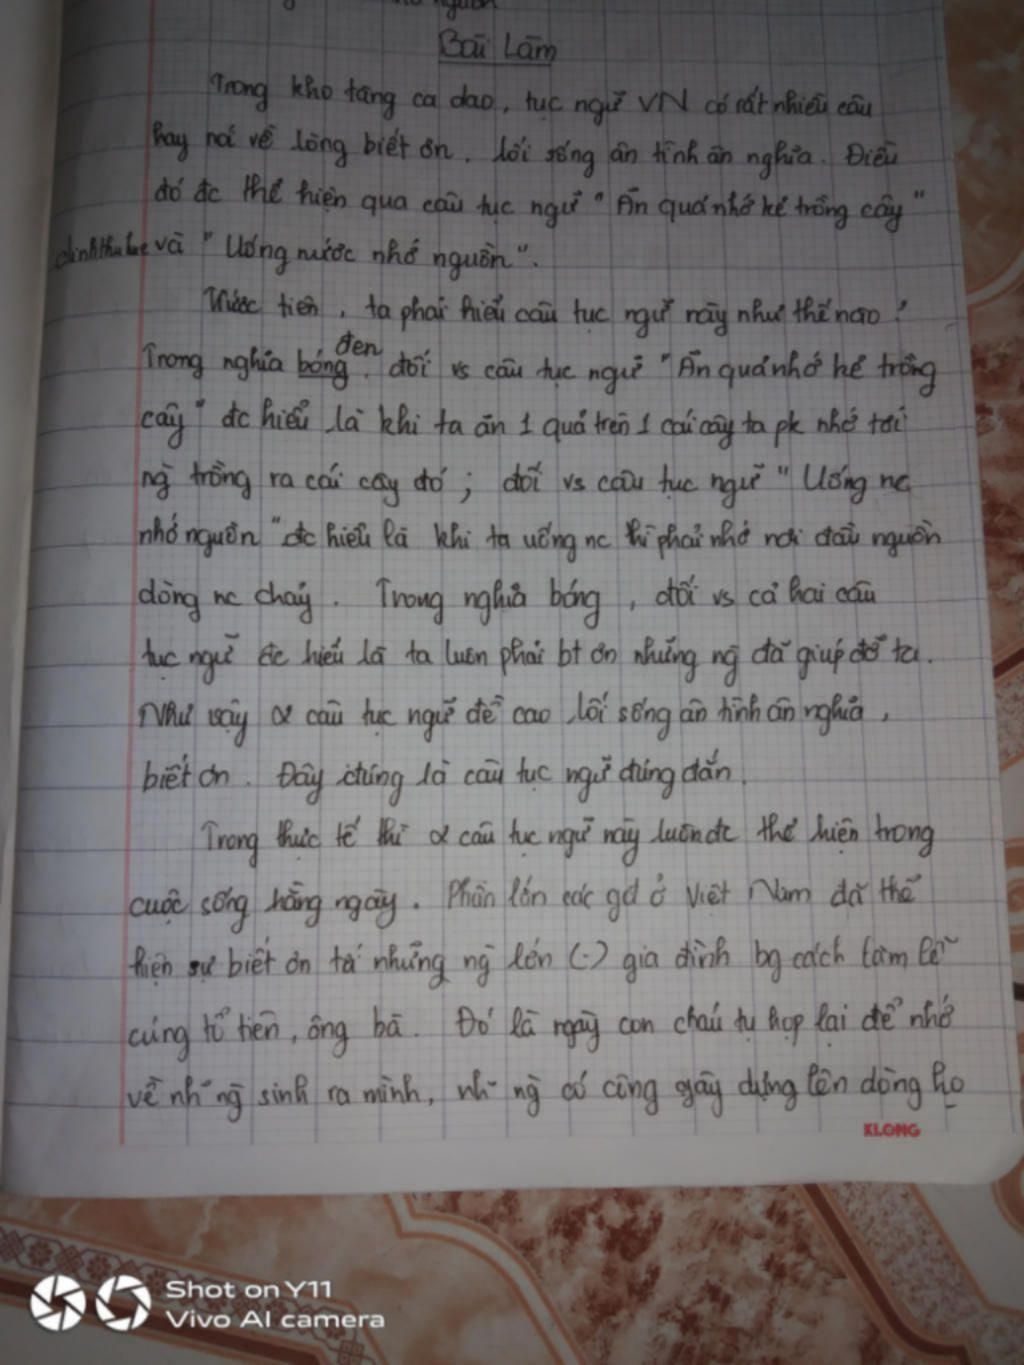 nguồn
Bài Làm
Trong kho tàng ca dao, tục ngữ VN có rất nhiều câu
hay nói về lòng biết ơn, lối sống ân tình ân nghĩa. Điều
đó đc thể hiện qua câu tục ngữ "Ăn quả nhớ kẻ trồng cây"
và "Uống nước nhớ nguồn".
Trước tiên, ta phải hiểu câu tục ngữ này như thế nào?
đen
Trong nghĩa bóng, đối vs câu tục ngữ "Ăn quả nhớ kẻ trồng
cây" đc hiểu là khi ta ăn 1 quả trên 1 cái cây ta pk nhớ tới
ng̀ trồng ra cái cây đó; đối vs câu tục ngữ "Uống nc
nhớ nguồn" đc hiểu là khi ta uống nc thì phải nhớ nơi đầu nguồn
dòng nc chảy. Trong nghĩa bóng, đối vs cả hai câu
tục ngữ đc hiểu là ta luôn phải bt ơn những ng̀ đã giúp đỡ ta.
Như vậy 2 câu tục ngữ đề cao lối sống ân tình ân nghĩa,
biết ơn. Đây chúng là câu tục ngữ đúng đắn.
Trong thực tế thì 2 câu tục ngữ này luôn đc thể hiện trong
cuộc sống hằng ngày. Phần lớn các gd ở Việt Nam đã thể
hiện sự biết ơn tới những ng̀ lớn (-) gia đình bg cách làm lễ
cúng tổ tiên, ông bà. Đó là ngày con cháu tụ họp lại để nhớ
về nh~ ng̀ sinh ra mình, nh~ ng̀ có công gây dựng lên dòng họ
KLONG
Shot on Y11
Vivo AI camera